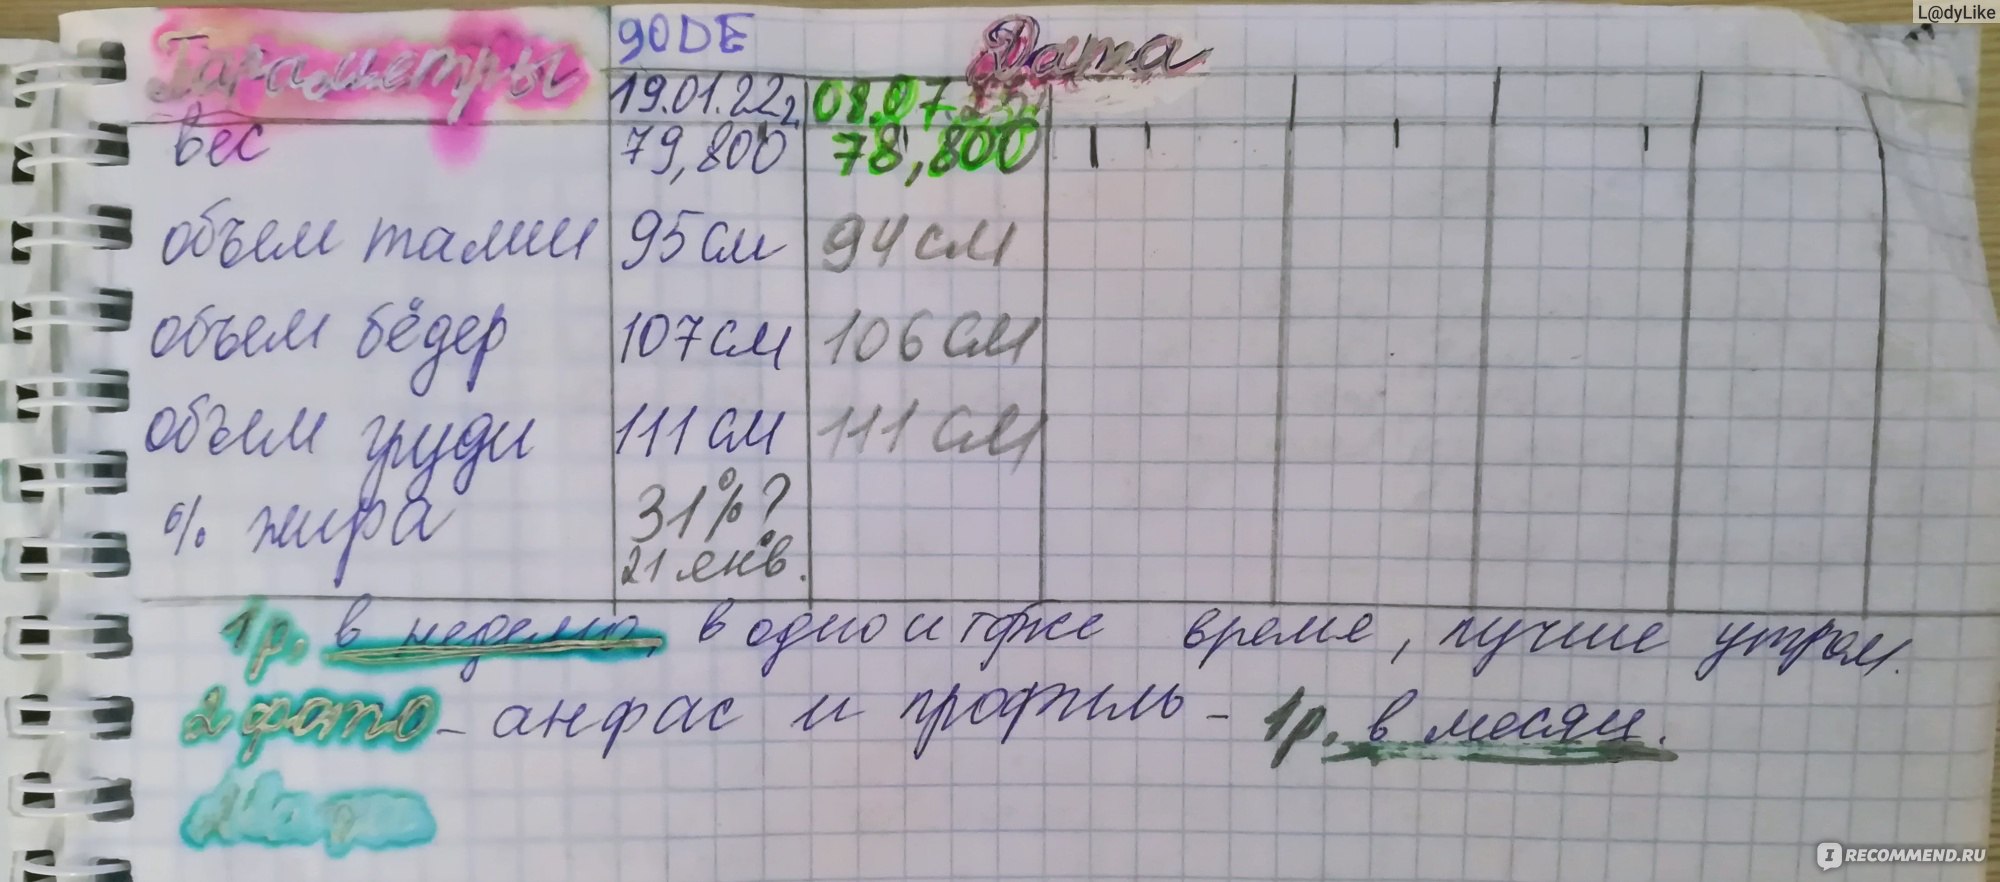 L@dyLike
90DE
Параметры Дата
19.01.22 08.07.
вес 79,800 78,800
объем талии 95см 94см
объем бёдер 107см 106см
объем груди 111см 111см
% жира 31%?
21 янв.
1р. в неделю, в одно и тоже время, лучше утром.
2 фото - анфас и профиль - 1р. в месяц.
IRECOMMEND.RU